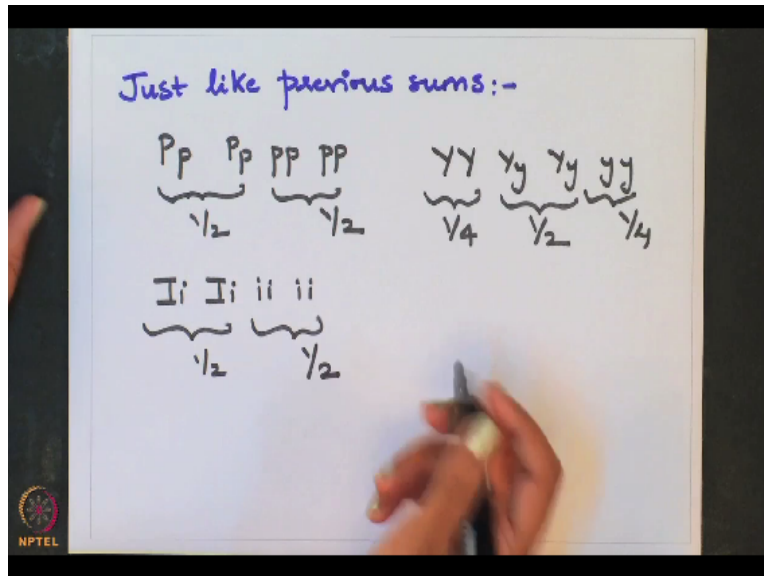 Just like previous sums:-
Pp Pp pp pp
1/2 1/2
YY Yy Yy yy
1/4 1/2 1/4
Ii Ii ii ii
1/2 1/2
NPTEL